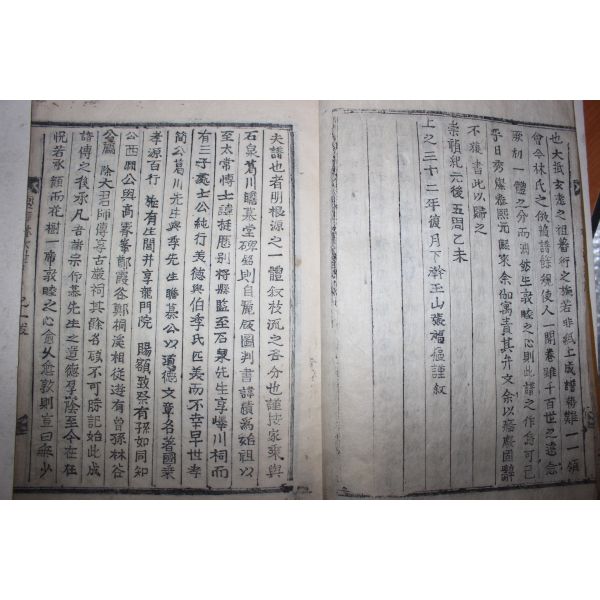 也大抵玄遠之祖蕃衍之族若非紙上成譜稀難一一領
會今林氏之倣譜餘規使人一開卷雖千百世之遠忘
厥初一體之分而淵然生敦睦之心則此譜之作烏可已
乎日秀燦春熙元熙來余伽寓責其弁文余以癃廢固辭
不獲書此以歸之
崇禎紀元後五周乙未
上之三十二年復月下澣玉山張福樞謹叙
夫譜也者明根源之一體叙枝流之各分也謹按家乘與
石泉葛川瞻慕堂碑銘則自麗版圖判書諱積爲始祖以
至太常博士諱挺歷別將縣監至石泉先生享華川祠而
有三子處士公純行美德與伯季氏匹美而不幸早世孝
簡公葛川先生與季先生瞻慕公以道德文章名著國乘
孝源百行 旌有生閭并享龍門院 賜額致祭有孫如同知
公西澗公與高峯 鄭霞谷鄭桐溪相從遊有曾孫林谷
公 除大君師傅享古巖祠其餘名碩不可勝記始此成
譜傳之後承凡吾諸宗 慕先生之遺德厚蔭至今在在
怳若承顔而花樹一席敦睦之心愈久愈歎則豈曰無少